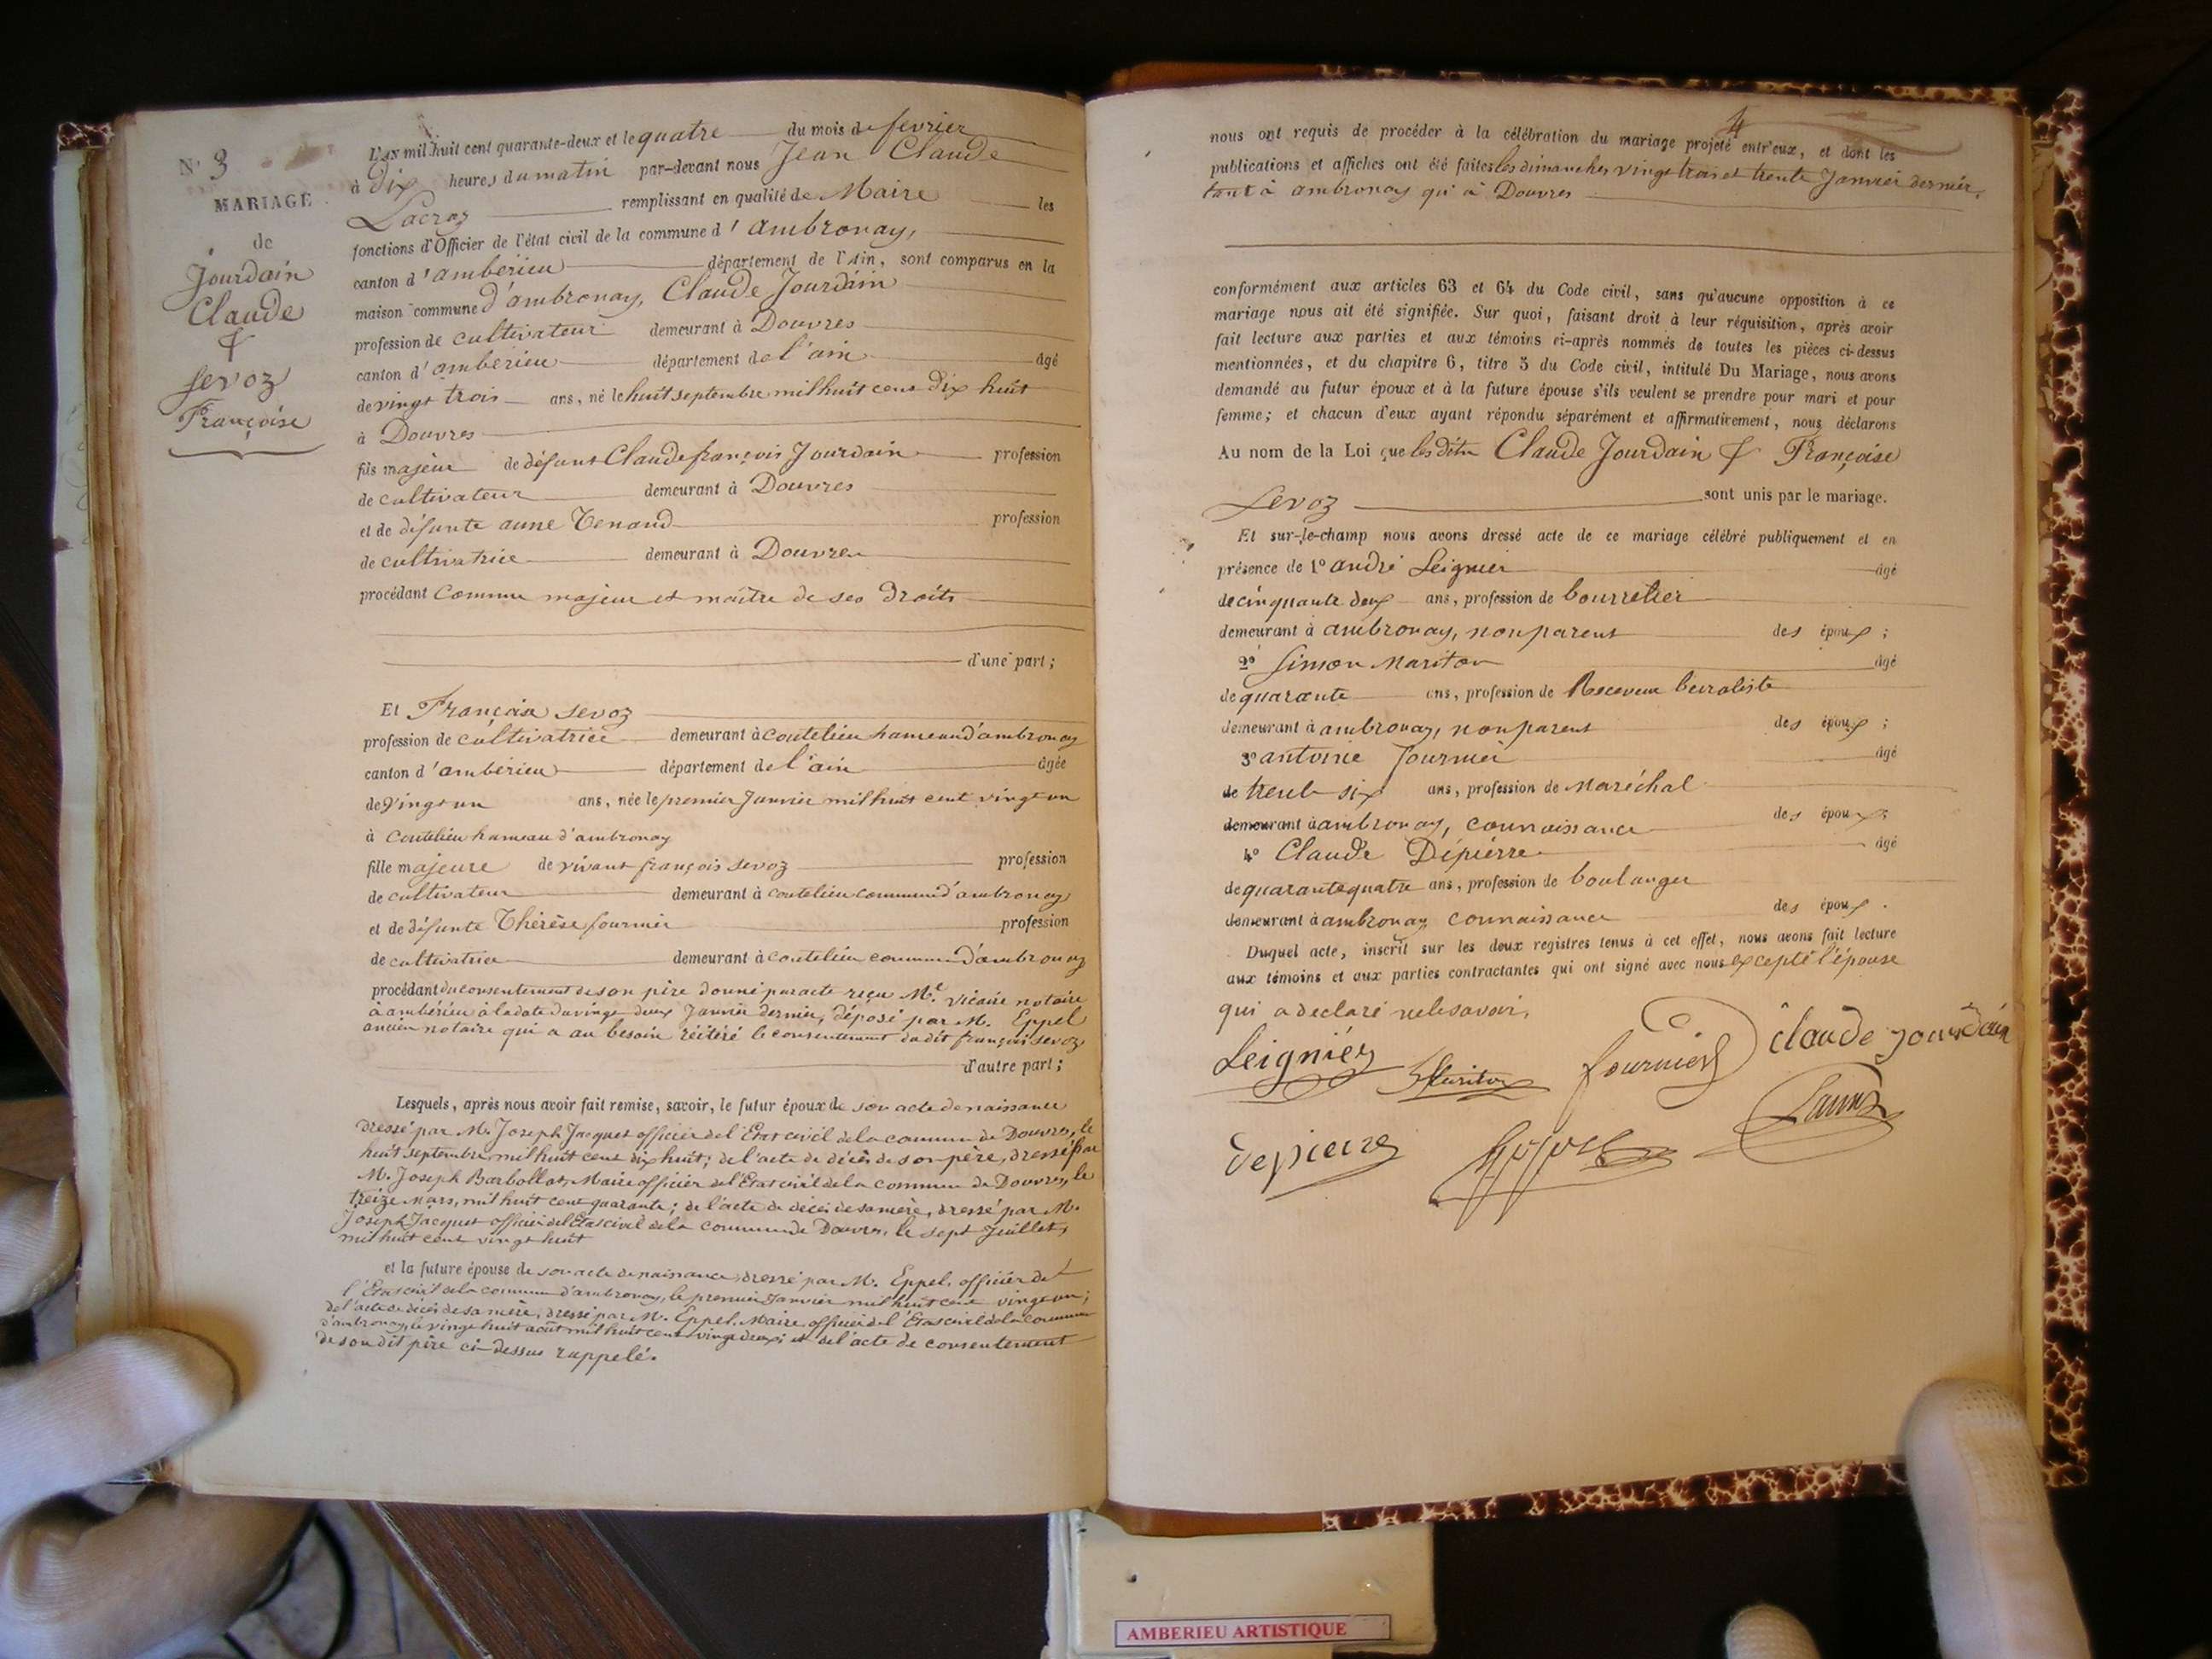 N° 3
MARIAGE
de
Jourdain
Claude
&
Sevoz
Françoise
L'an mil huit cent quarante-deux et le quatre du mois de fevrier
à dix heures du matin par-devant nous Jean Claude
Lacroz remplissant en qualité de Maire les
fonctions d'Officier de l'état civil de la commune d'ambronay,
canton d'ambérieu département de l'ain, sont comparus en la
maison commune d'ambronay, Claude Jourdain
profession de cultivateur demeurant à Douvres
canton d'ambérieu département de l'ain âgé
de vingt trois ans, né le huit septembre mil huit cent dix huit
à Douvres
fils majeur de défunt Claude françois Jourdain profession
de cultivateur demeurant à Douvres
et de défunte anne Tenand profession
de cultivatrice demeurant à Douvres
procédant comme majeur et maître de ses droits
d'une part;
Et Françoise Sevoz
profession de cultivatrice demeurant à Coutelieu hameau d'ambronay
canton d'ambérieu département de l'ain âgée
de vingt un ans, née le premier Janvier mil huit cent vingt un
à Coutelieu hameau d'ambronay
fille majeure de vivant françois Sevoz profession
de cultivateur demeurant à Coutelieu commune d'ambronay
et de défunte Thérèse fournier profession
de cultivatrice demeurant à Coutelieu commune d'ambronay
procédant du consentement de son père donné par acte reçu Me. Vicaire notaire
à ambérieu à la date du vingt deux Janvier dernier, déposé par M. Eppel
ancien notaire qui a au besoin réitéré le consentement dudit françois Sevoz
d'autre part;
Lesquels, après nous avoir fait remise, savoir, le futur époux de son acte de naissance
dressé par M. Joseph Jacquet officier de l'Etat civil de la commune de Douvres, le
huit septembre mil huit cent dix huit; de l'acte de décès de son père, dressé par
M. Joseph Barbollat, Maire officier de l'Etat civil de la commune de Douvres, le
treize Mars, mil huit cent quarante; de l'acte de décès de sa mère, dressé par M.
Joseph Jacquet officier de l'Etat civil de la commune de Douvres, le sept Juillet,
mil huit cent vingt huit
et la future épouse de son acte de naissance, dressé par M. Eppel, officier de
l'Etat civil de la commune d'ambronay, le premier Janvier mil huit cent vingt un;
de l'acte de décès de sa mère, dressé par M. Eppel, Maire officier de l'Etat civil de la commune
d'ambronay, le vingt huit août mil huit cent vingt deux; et de l'acte de consentement
de son dit père ci-dessus rappelé.
4
nous ont requis de procéder à la célébration du mariage projeté entr'eux, et dont les
publications et affiches ont été faites les dimanches vingt trois et trente Janvier dernier,
tant à ambronay qu'à Douvres
conformément aux articles 63 et 64 du Code civil, sans qu'aucune opposition à ce
mariage nous ait été signifiée. Sur quoi, faisant droit à leur réquisition, après avoir
fait lecture aux parties et aux témoins ci-après nommés de toutes les pièces ci-dessus
mentionnées, et du chapitre 6, titre 5 du Code civil, intitulé Du Mariage, nous avons
demandé au futur époux et à la future épouse s'ils veulent se prendre pour mari et pour
femme; et chacun d'eux ayant répondu séparément et affirmativement, nous déclarons
Au nom de la Loi que les dits Claude Jourdain & Françoise
Sevoz sont unis par le mariage.
Et sur-le-champ nous avons dressé acte de ce mariage célébré publiquement et en
présence de 1° andré Leignier âgé
de cinquante deux ans, profession de bourrelier
demeurant à ambronay, non parent des époux;
2° Simon Mariton âgé
de quarante ans, profession de Receveur buraliste
demeurant à ambronay, non parent des époux;
3° antoine fournier âgé
de trente six ans, profession de Maréchal
demeurant à ambronay, connaissance des époux;
4° Claude Dépierre âgé
de quarante quatre ans, profession de boulanger
demeurant à ambronay connaissance des époux.
Duquel acte, inscrit sur les deux registres tenus à cet effet, nous avons fait lecture
aux témoins et aux parties contractantes qui ont signé avec nous excepté l'épouse
qui a déclaré ne le savoir,
Leignier Mariton fournier claude jourdain
depierre Lacroz
AMBERIEU ARTISTIQUE